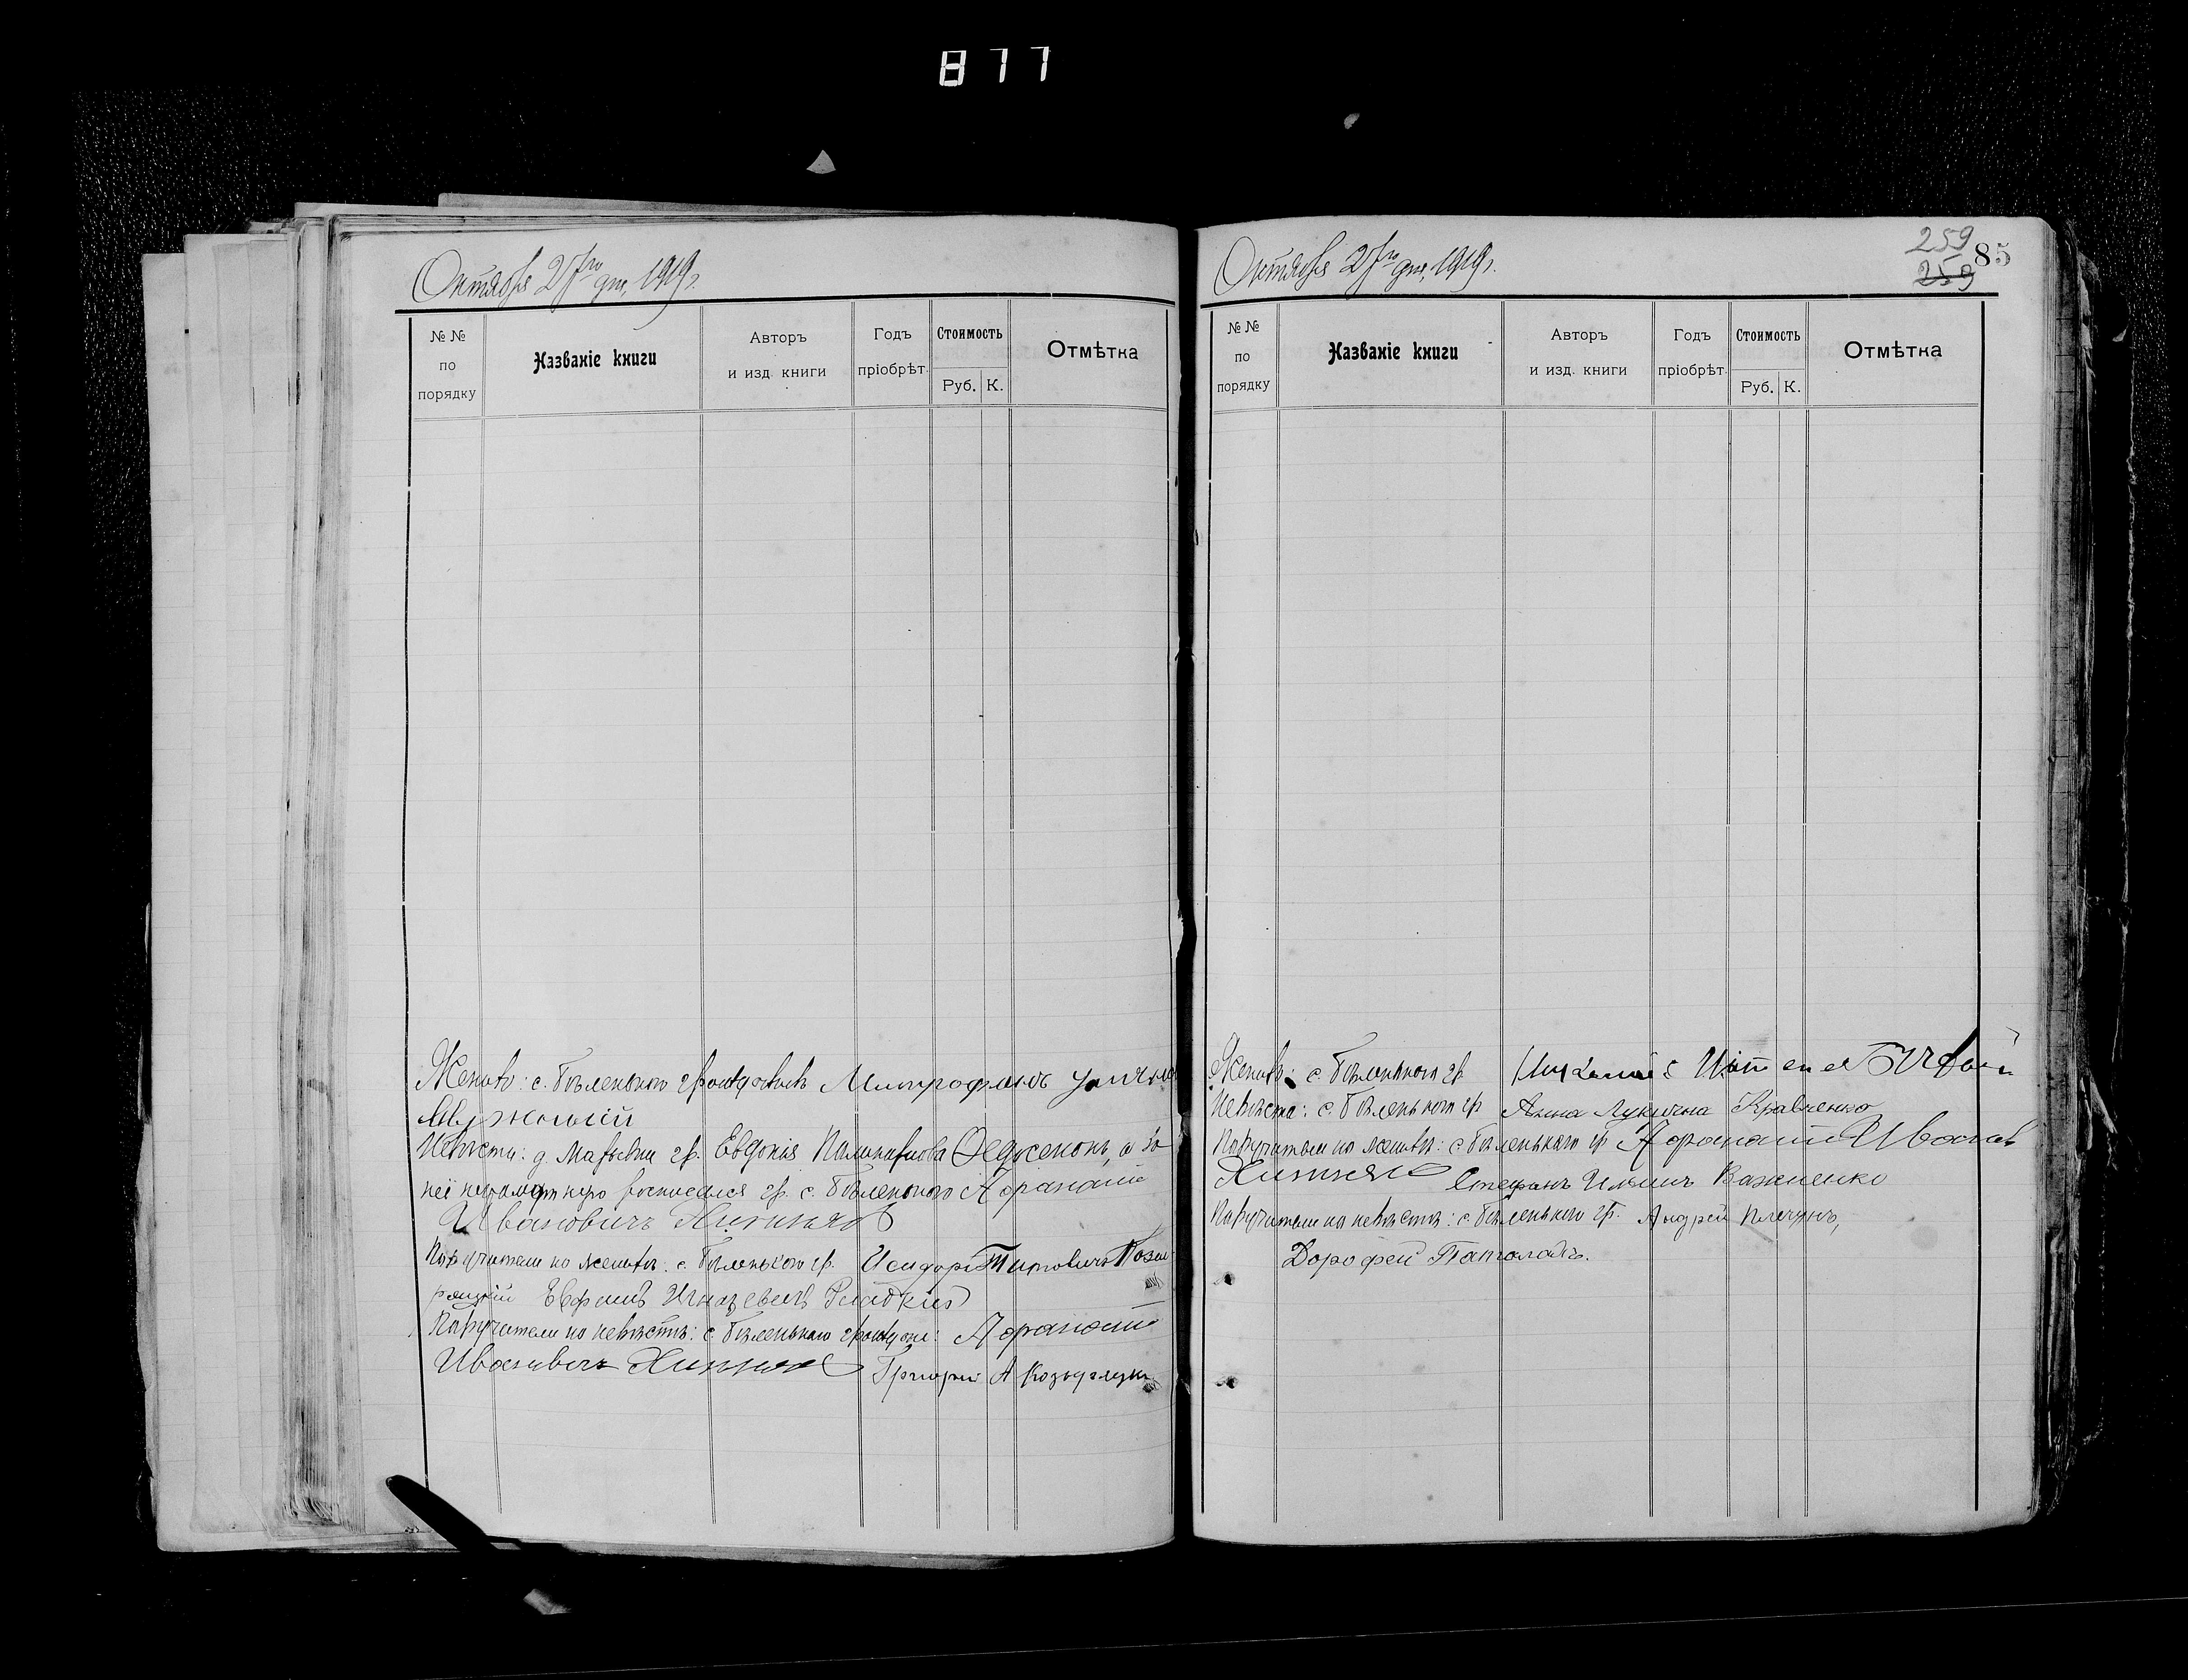 877
Октября 27го дня, 1919 г.
№№ по порядку
Названіе книги
Авторъ и изд. книги
Годъ пріобрѣт.
Стоимость
Руб. К.
Отмѣтка
Женихъ: с. Бѣленькаго гражданинъ Митрофанъ
Невѣста: д. Марьевки гр. Евдокія Поликарпова Федосенко, а за
неё неграмотную росписался гр. с. Бѣленькаго Афанасій
Ивановичъ Хитняк
Поручители по женихѣ: с. Бѣленького гр. Исидоръ Титовичъ
Евфимъ Игнатевичъ Гладкий
Поручители по невѣстѣ: с. Бѣленькаго граждане: Афанасий
Ивановичъ Хитняк Григорий
259
259
85
Октября 27го дня, 1919 г.
№№ по порядку
Названіе книги
Авторъ и изд. книги
Годъ пріобрѣт.
Стоимость
Руб. К.
Отмѣтка
Женихъ: с. Бѣленького гр.
Невѣста: с. Бѣленького гр. Анна Лукична Кравченко
Поручители по женихѣ: с. Бѣленького гр. Афанасий Иванов
Хитняк Стефанъ Ильичъ Важненко
Поручители по невѣстѣ: с. Бѣленького гр. Андрей Плечунъ,
Дорофей Паталахъ.